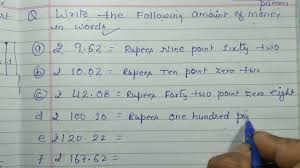 primon
Q Write the Following amount of money
in words
(a) ₹ 9.62 = Rupees Nine point Sixty two
(b) ₹ 10.02 = Rupees Ten point zero two
(c) ₹ 42.08 = Rupees Forty two point zero eight
d ₹ 100.10 = Rupees one hundred poi
e ₹ 120.22 =
f ₹ 167.62 =